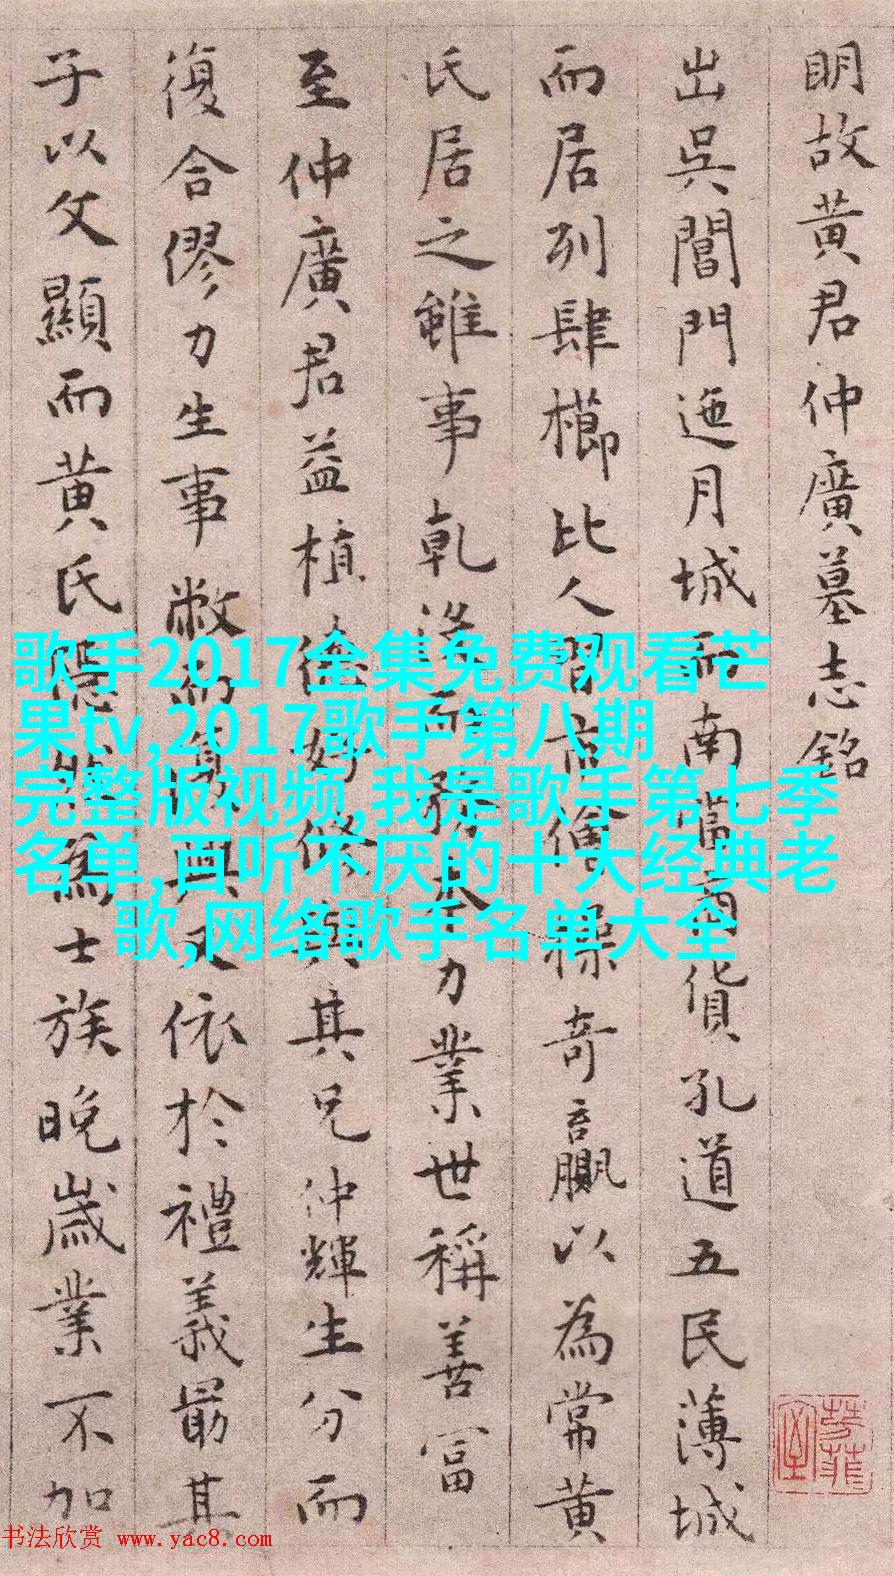 明故黄君仲廣墓志銘
出吳閶門迤月城而南貨孔道五民薄城
而居列肆櫛比人習市儈操奇贏以為常黄
氏居之雖事乾沒而務本力業世稱善富
至仲廣君益植德好脩與其兄仲輝生分而
復合僇力生事敝而興又依於禮義最其
子以文顯而黄氏隱然為士族晚歲業不加
歌手2017全集免费观看芒
果tv,2017歌手第八期
完整版视频,我是歌手第七季
名单,百听不厌的十大经典老
歌,网络歌手名单大全
书法欣赏 www.yac8.com